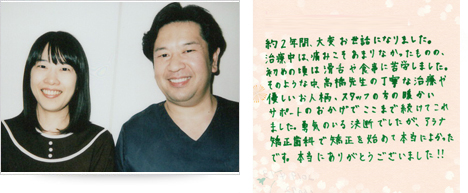 約2年間、大変お世話になりました。
治療中は、痛みこそあまりなかったものの、
初めの頃は滑舌や食事に苦労しました。
そのような中、高橋先生の丁寧な治療や
優しいお人柄、スタッフの方の暖かい
サポートのおかげでここまで続けてこれ
ました。勇気のいる決断でしたが、アラナ
矯正歯科で矯正を始めて本当によかった
です。本当にありがとうございました!!